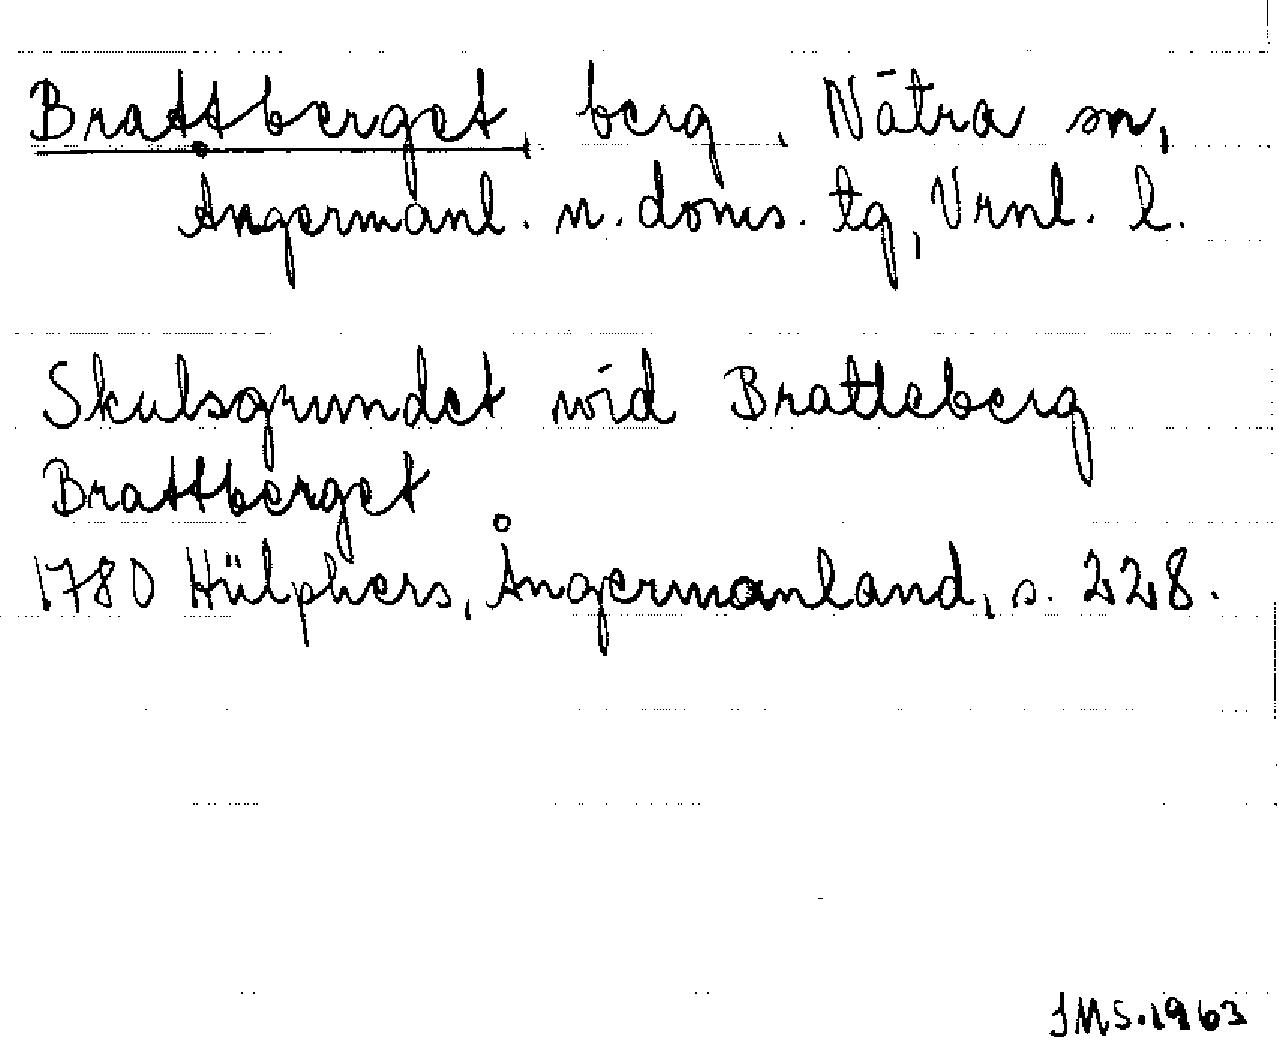 Brattberget, berg, Nätra sn,
Ångermanl. n. doms. tg, Vrnl. l.
Skulsgrundet wid Bratteberg
Brattberget
1780 Hülphers, Ångermanland, s. 228.
JMS. 1963